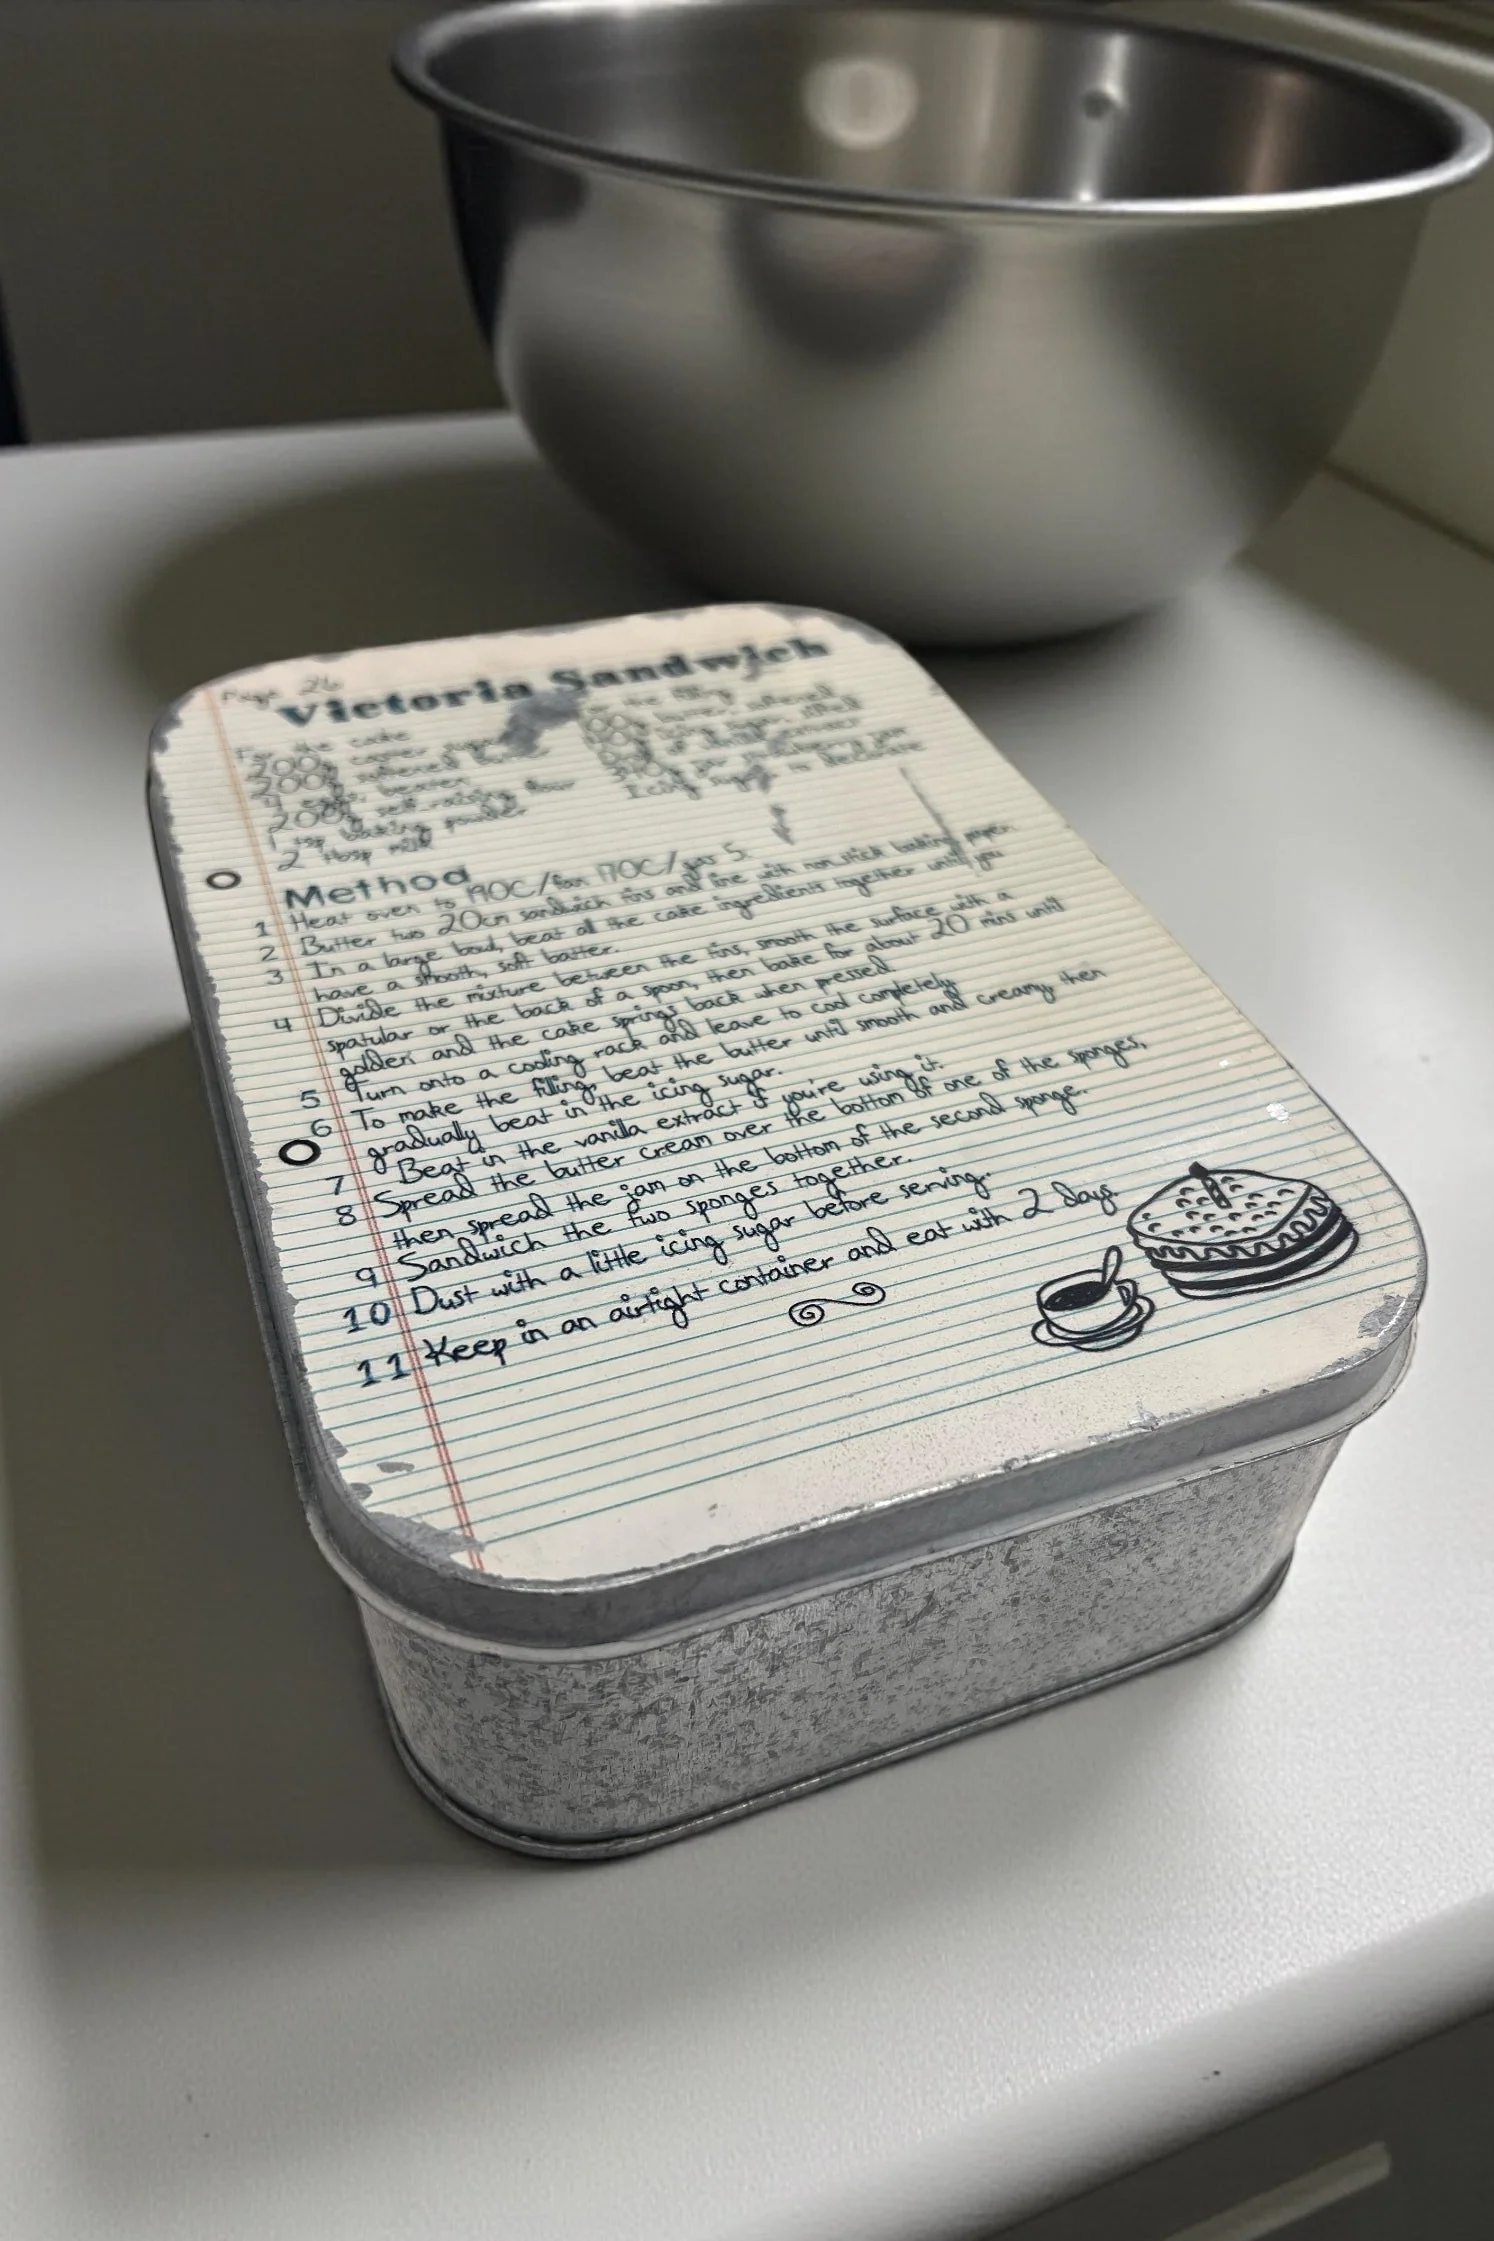 Page 26
Victoria Sandwich
For the cake
200g caster sugar
200g softened butter
4 eggs, beaten
200g self-raising flour
1 tsp baking powder
2 tbsp milk
the filling
butter, softened
icing sugar,
Icing sugar to decorate
Method
1 Heat oven to 190C/fan 170C/gas 5.
2 Butter two 20cm sandwich tins and line with non stick baking paper.
3 In a large bowl, beat all the cake ingredients together until you
have a smooth, soft batter.
4 Divide the mixture between the tins, smooth the surface with a
spatular or the back of a spoon, then bake for about 20 mins until
golden and the cake springs back when pressed
5 Turn onto a cooling rack and leave to cool completely
6 To make the filling, beat the butter until smooth and creamy, then
gradually beat in the icing sugar.
7 Beat in the vanilla extract if you're using it.
8 Spread the butter cream over the bottom of one of the sponges,
then spread the jam on the bottom of the second sponge.
9 Sandwich the two sponges together.
10 Dust with a little icing sugar before serving.
11 Keep in an airtight container and eat with 2 days